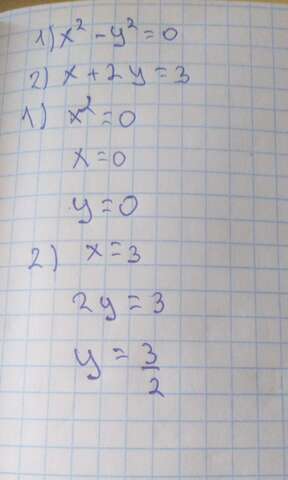 1) x² - y² = 0
2) x + 2y = 3
1) x² = 0
x = 0
y = 0
2) x = 3
2y = 3
y = 3/2